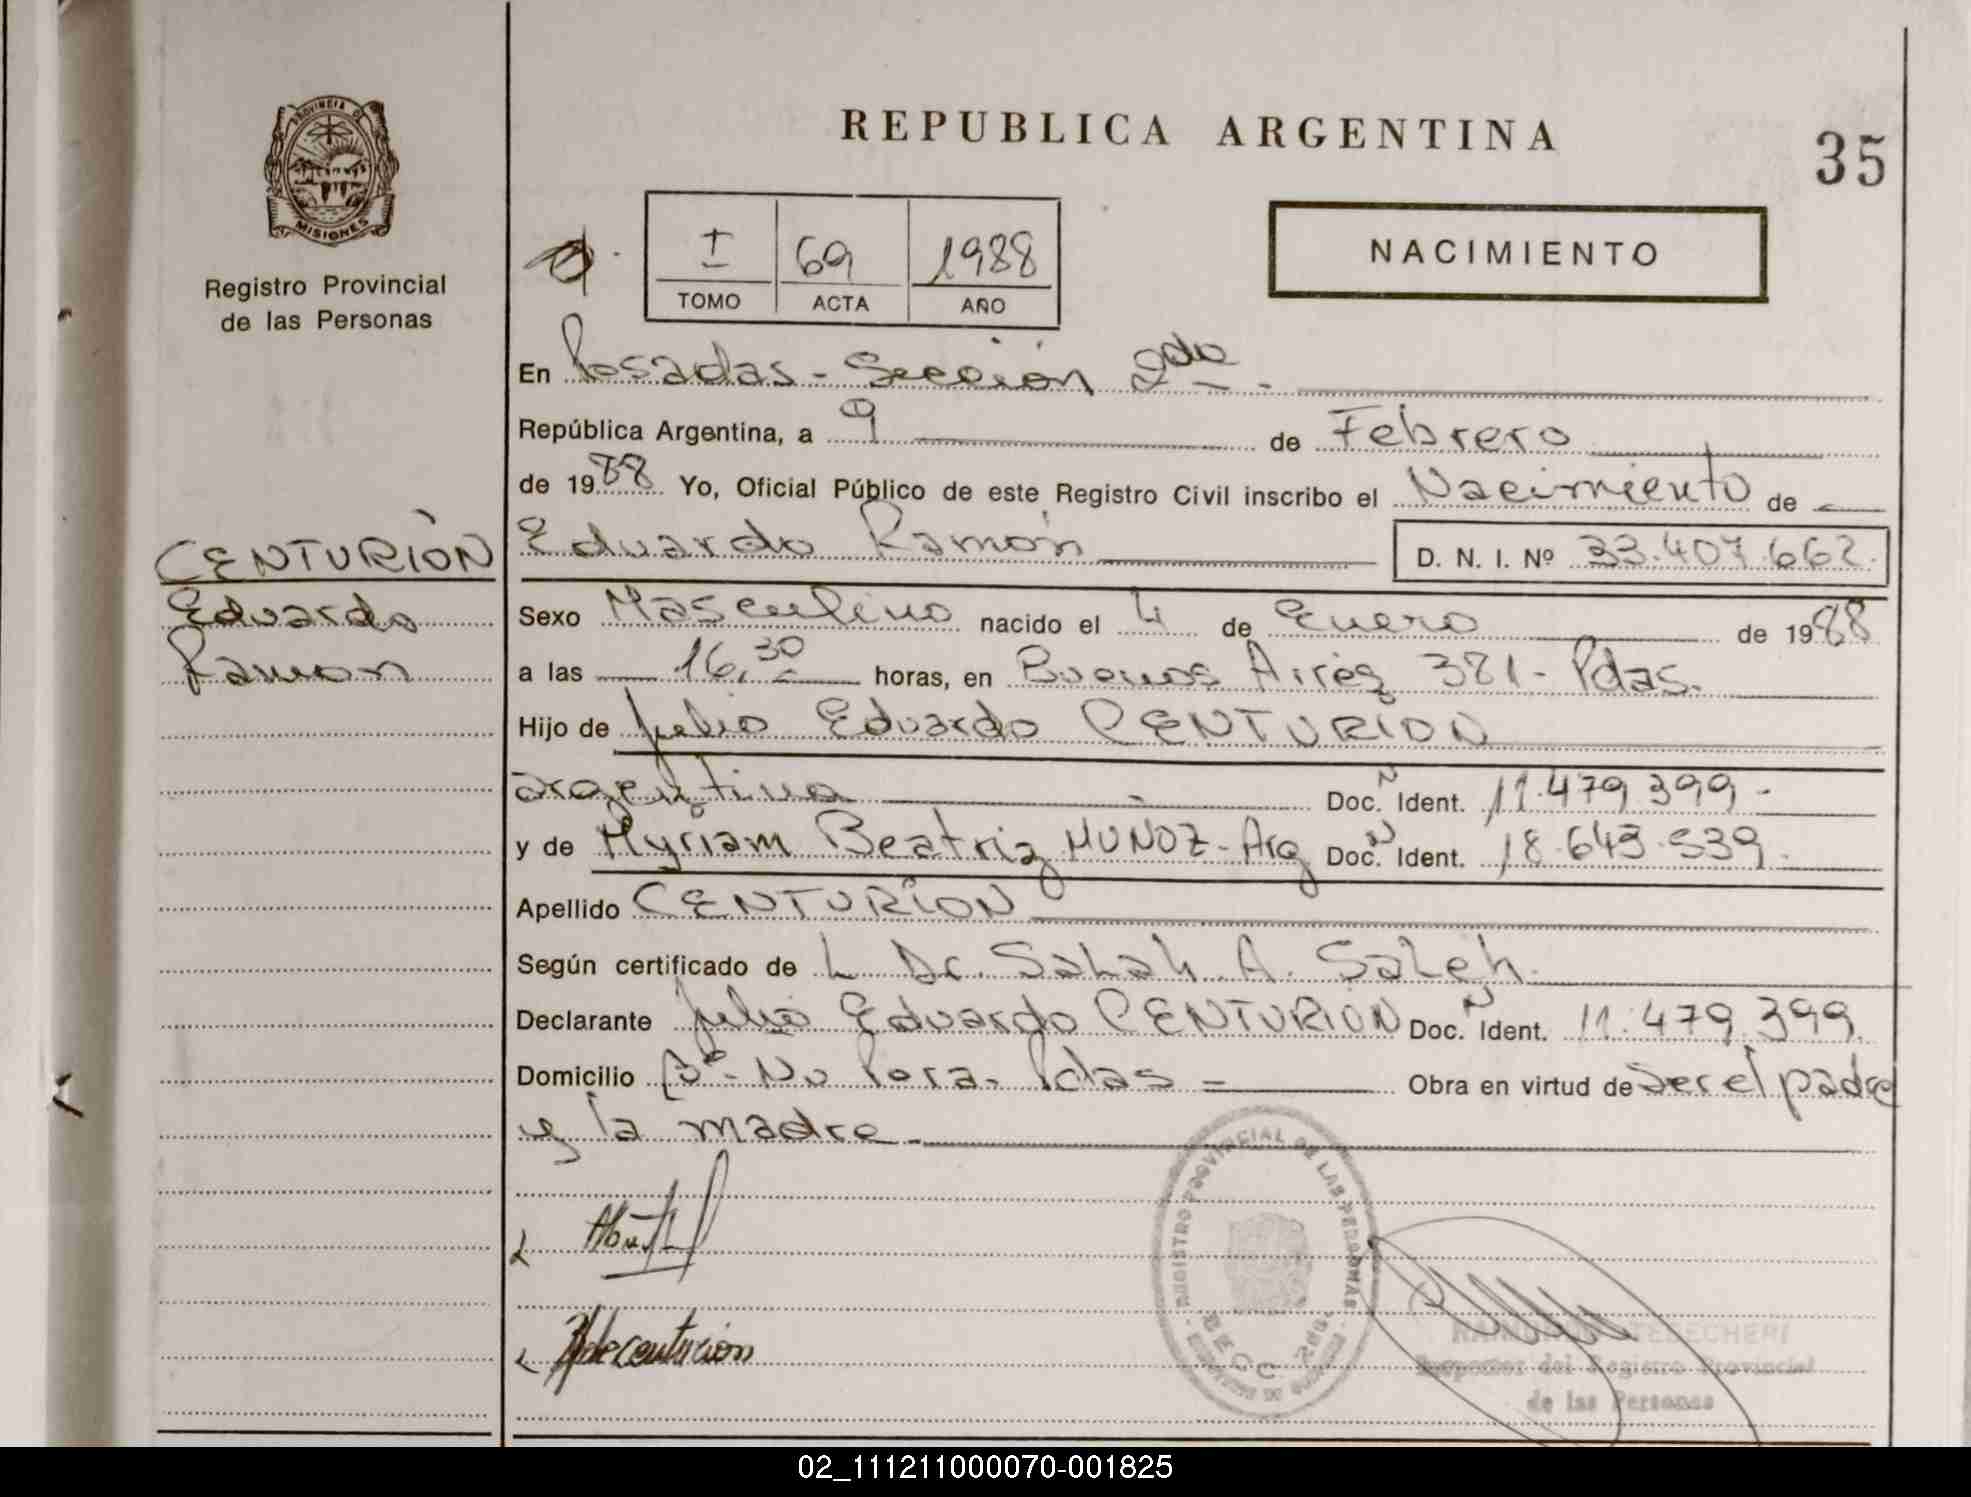 PROVINCIA DE
MISIONES
Registro Provincial
de las Personas
REPUBLICA ARGENTINA
35
I 69 1988
TOMO ACTA AÑO
NACIMIENTO
En Posadas - Sección 2da -
República Argentina, a 9 de Febrero
de 1988 Yo, Oficial Público de este Registro Civil inscribo el Nacimiento de
CENTURIÓN
Eduardo
Ramon
Eduardo Ramón D. N. I. Nº 33.407.662.
Sexo Masculino nacido el 4 de Enero de 1988
a las 16,30 horas, en Buenos Aires 381 - Pdas.
Hijo de Julio Eduardo CENTURION
argentino Doc. N Ident. 11.479.399 -
y de Myriam Beatriz MUÑOZ - Arg Doc. N Ident. 18.643.539.
Apellido CENTURION
Según certificado de L Dr. Salah A. Saleh.
Declarante Julio Eduardo CENTURION Doc. N Ident. 11.479.399.
Domicilio Bº - Ñu Pora - Pdas = Obra en virtud de ser el padre
y la madre.
REGISTRO PROVINCIAL DE LAS PERSONAS
SECC 2da
Inspector del Registro Provincial
de las Personas
02_111211000070-001825